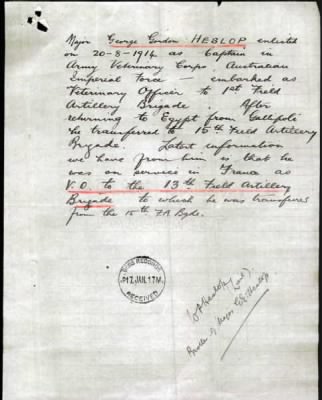 Major George Gordon HESLOP enlisted
on 20-8-1914 as Captain in
Army Veterinary Corps Australian
Imperial Force – embarked as
Veterinary Officer to 1st Field
Artillery Brigade. After
returning to Egypt from Gallipoli
he transferred to 15th Field Artillery
Brigade. Latest information
we have from him is that he
was on service in France as
V.O. to the 13th Field Artillery
Brigade to which he was transfered
from the 15th F.A. Bgde.
17 JUL 17
RECEIVED
Heslop
Brother of Major G G Heslop